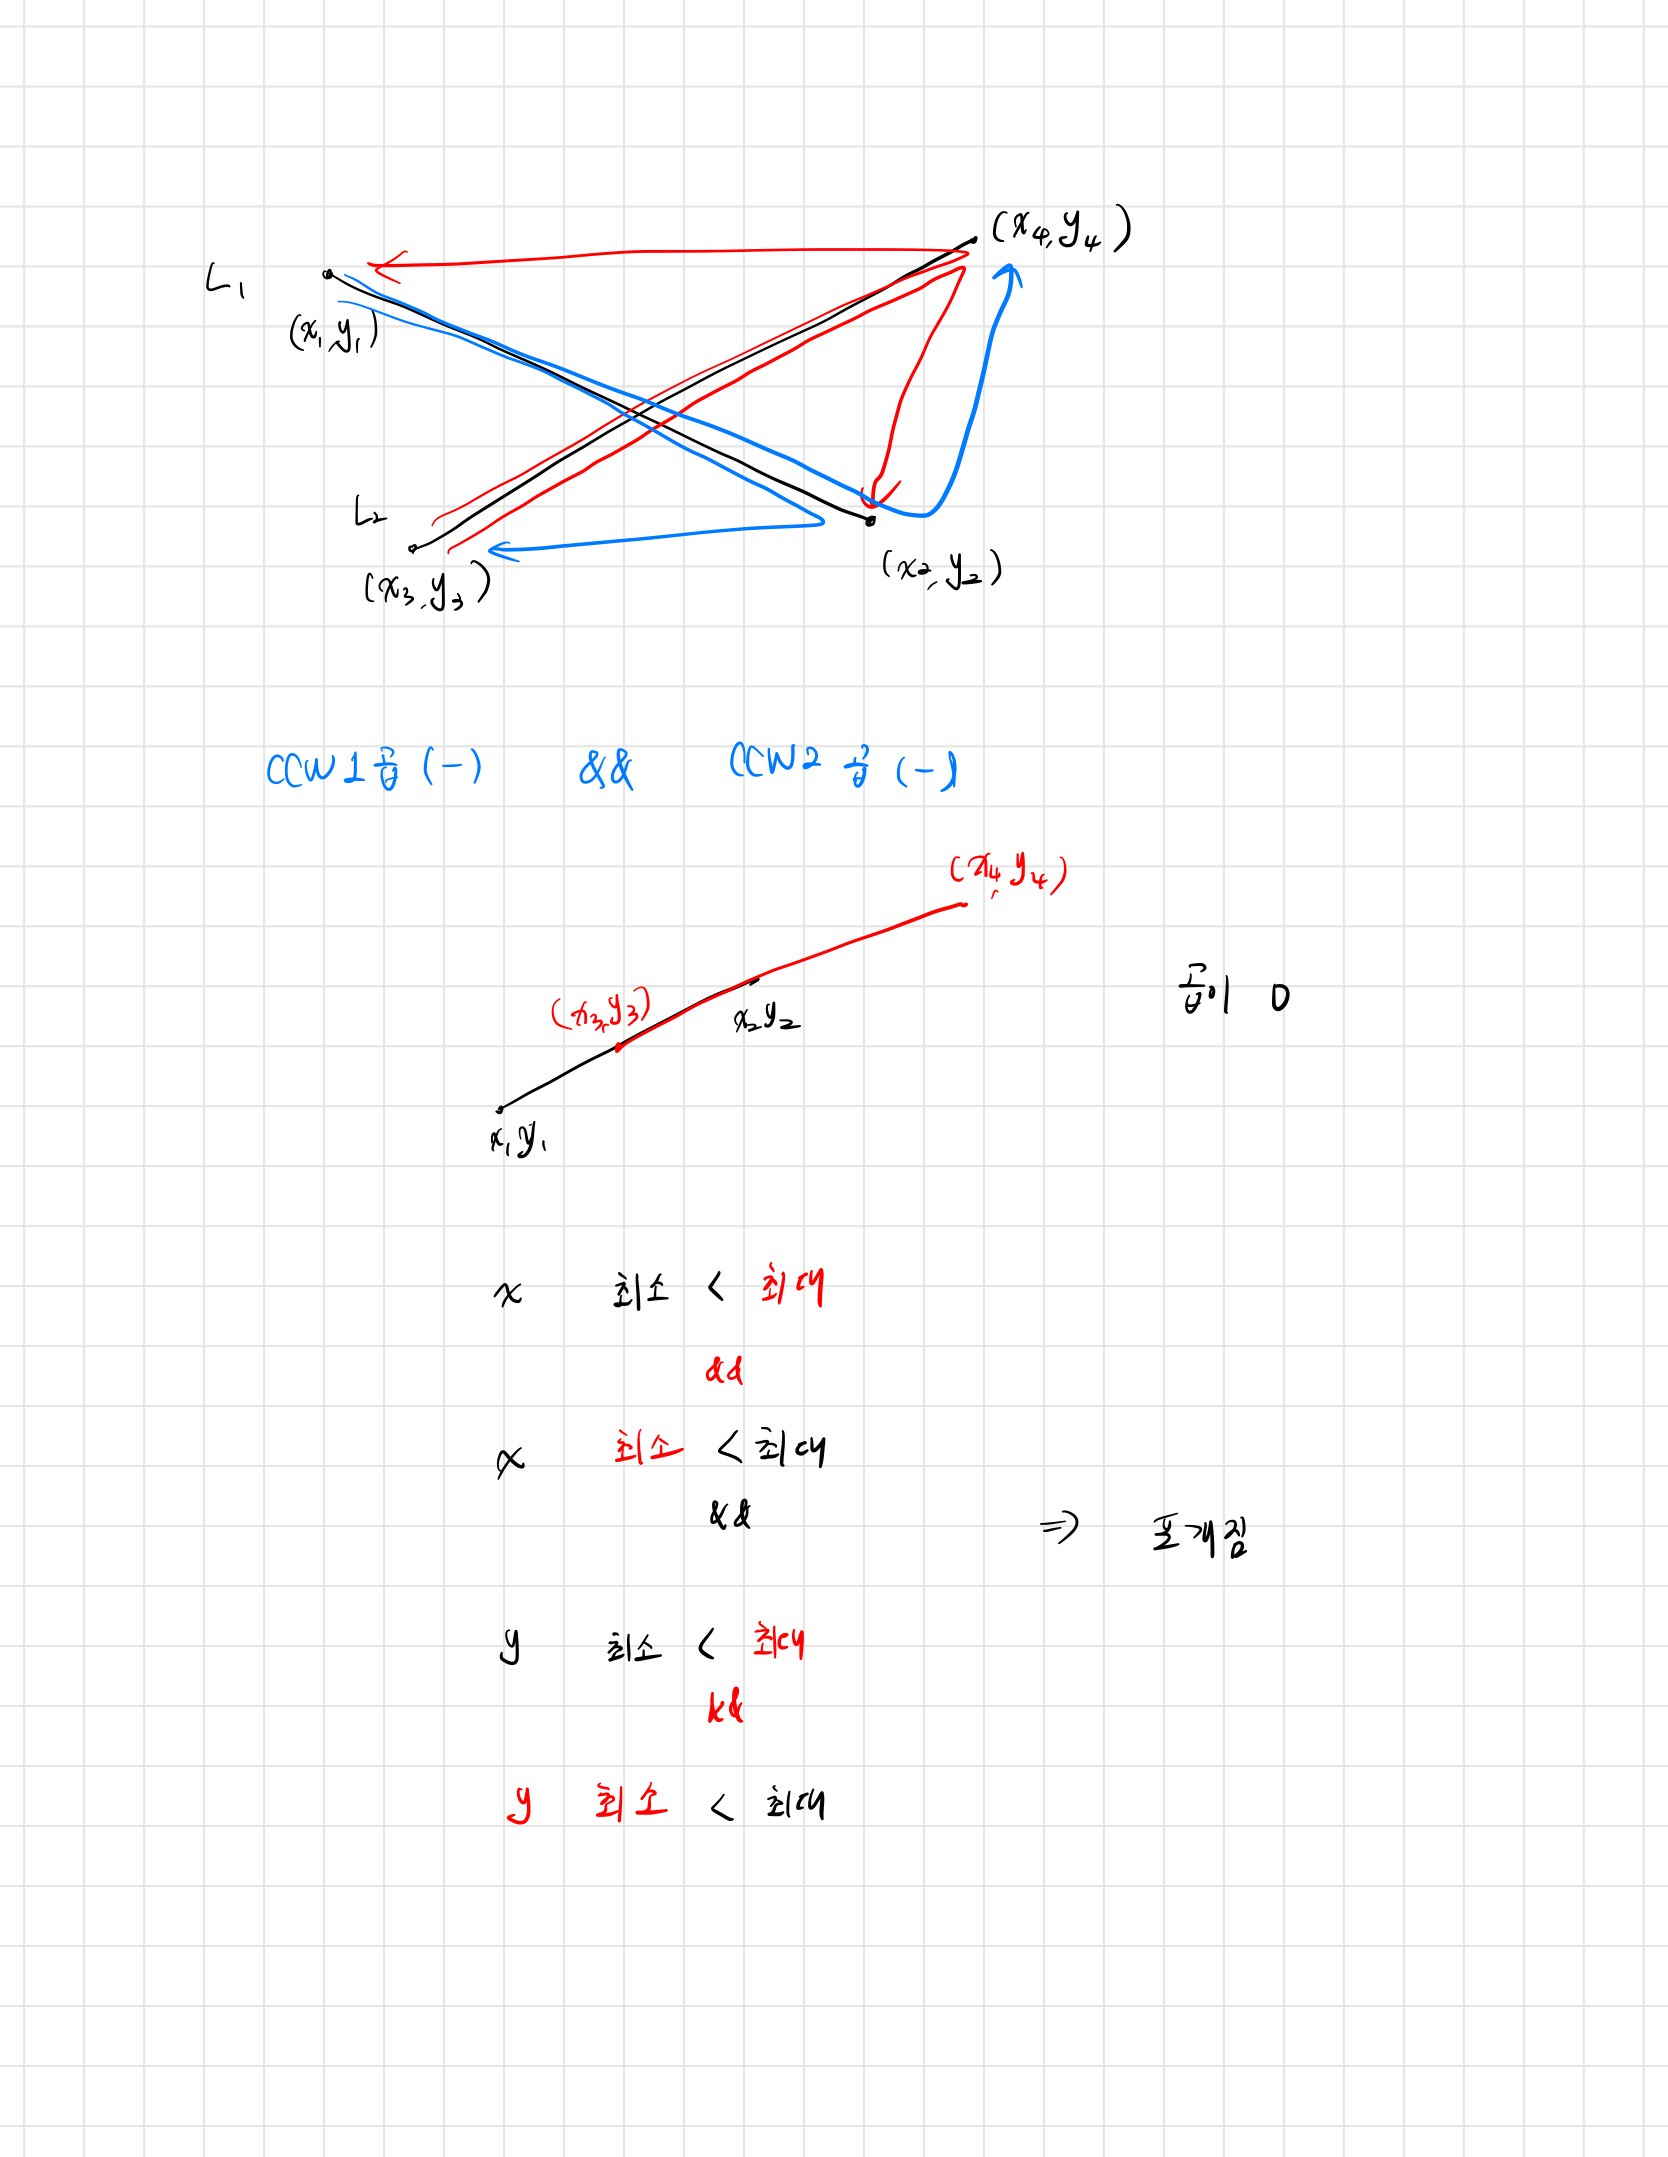 (x4, y4)
L1
(x1, y1)
L2
(x3, y3)
(x2, y2)
CCW1 곱 (-) && CCW2 곱 (-)
(x4, y4)
(x3, y3)
x2 y2
곱이 0
x1 y1
x 최소 < 최대
&&
x 최소 < 최대
&&
⇒ 포개짐
y 최소 < 최대
&&
y 최소 < 최대